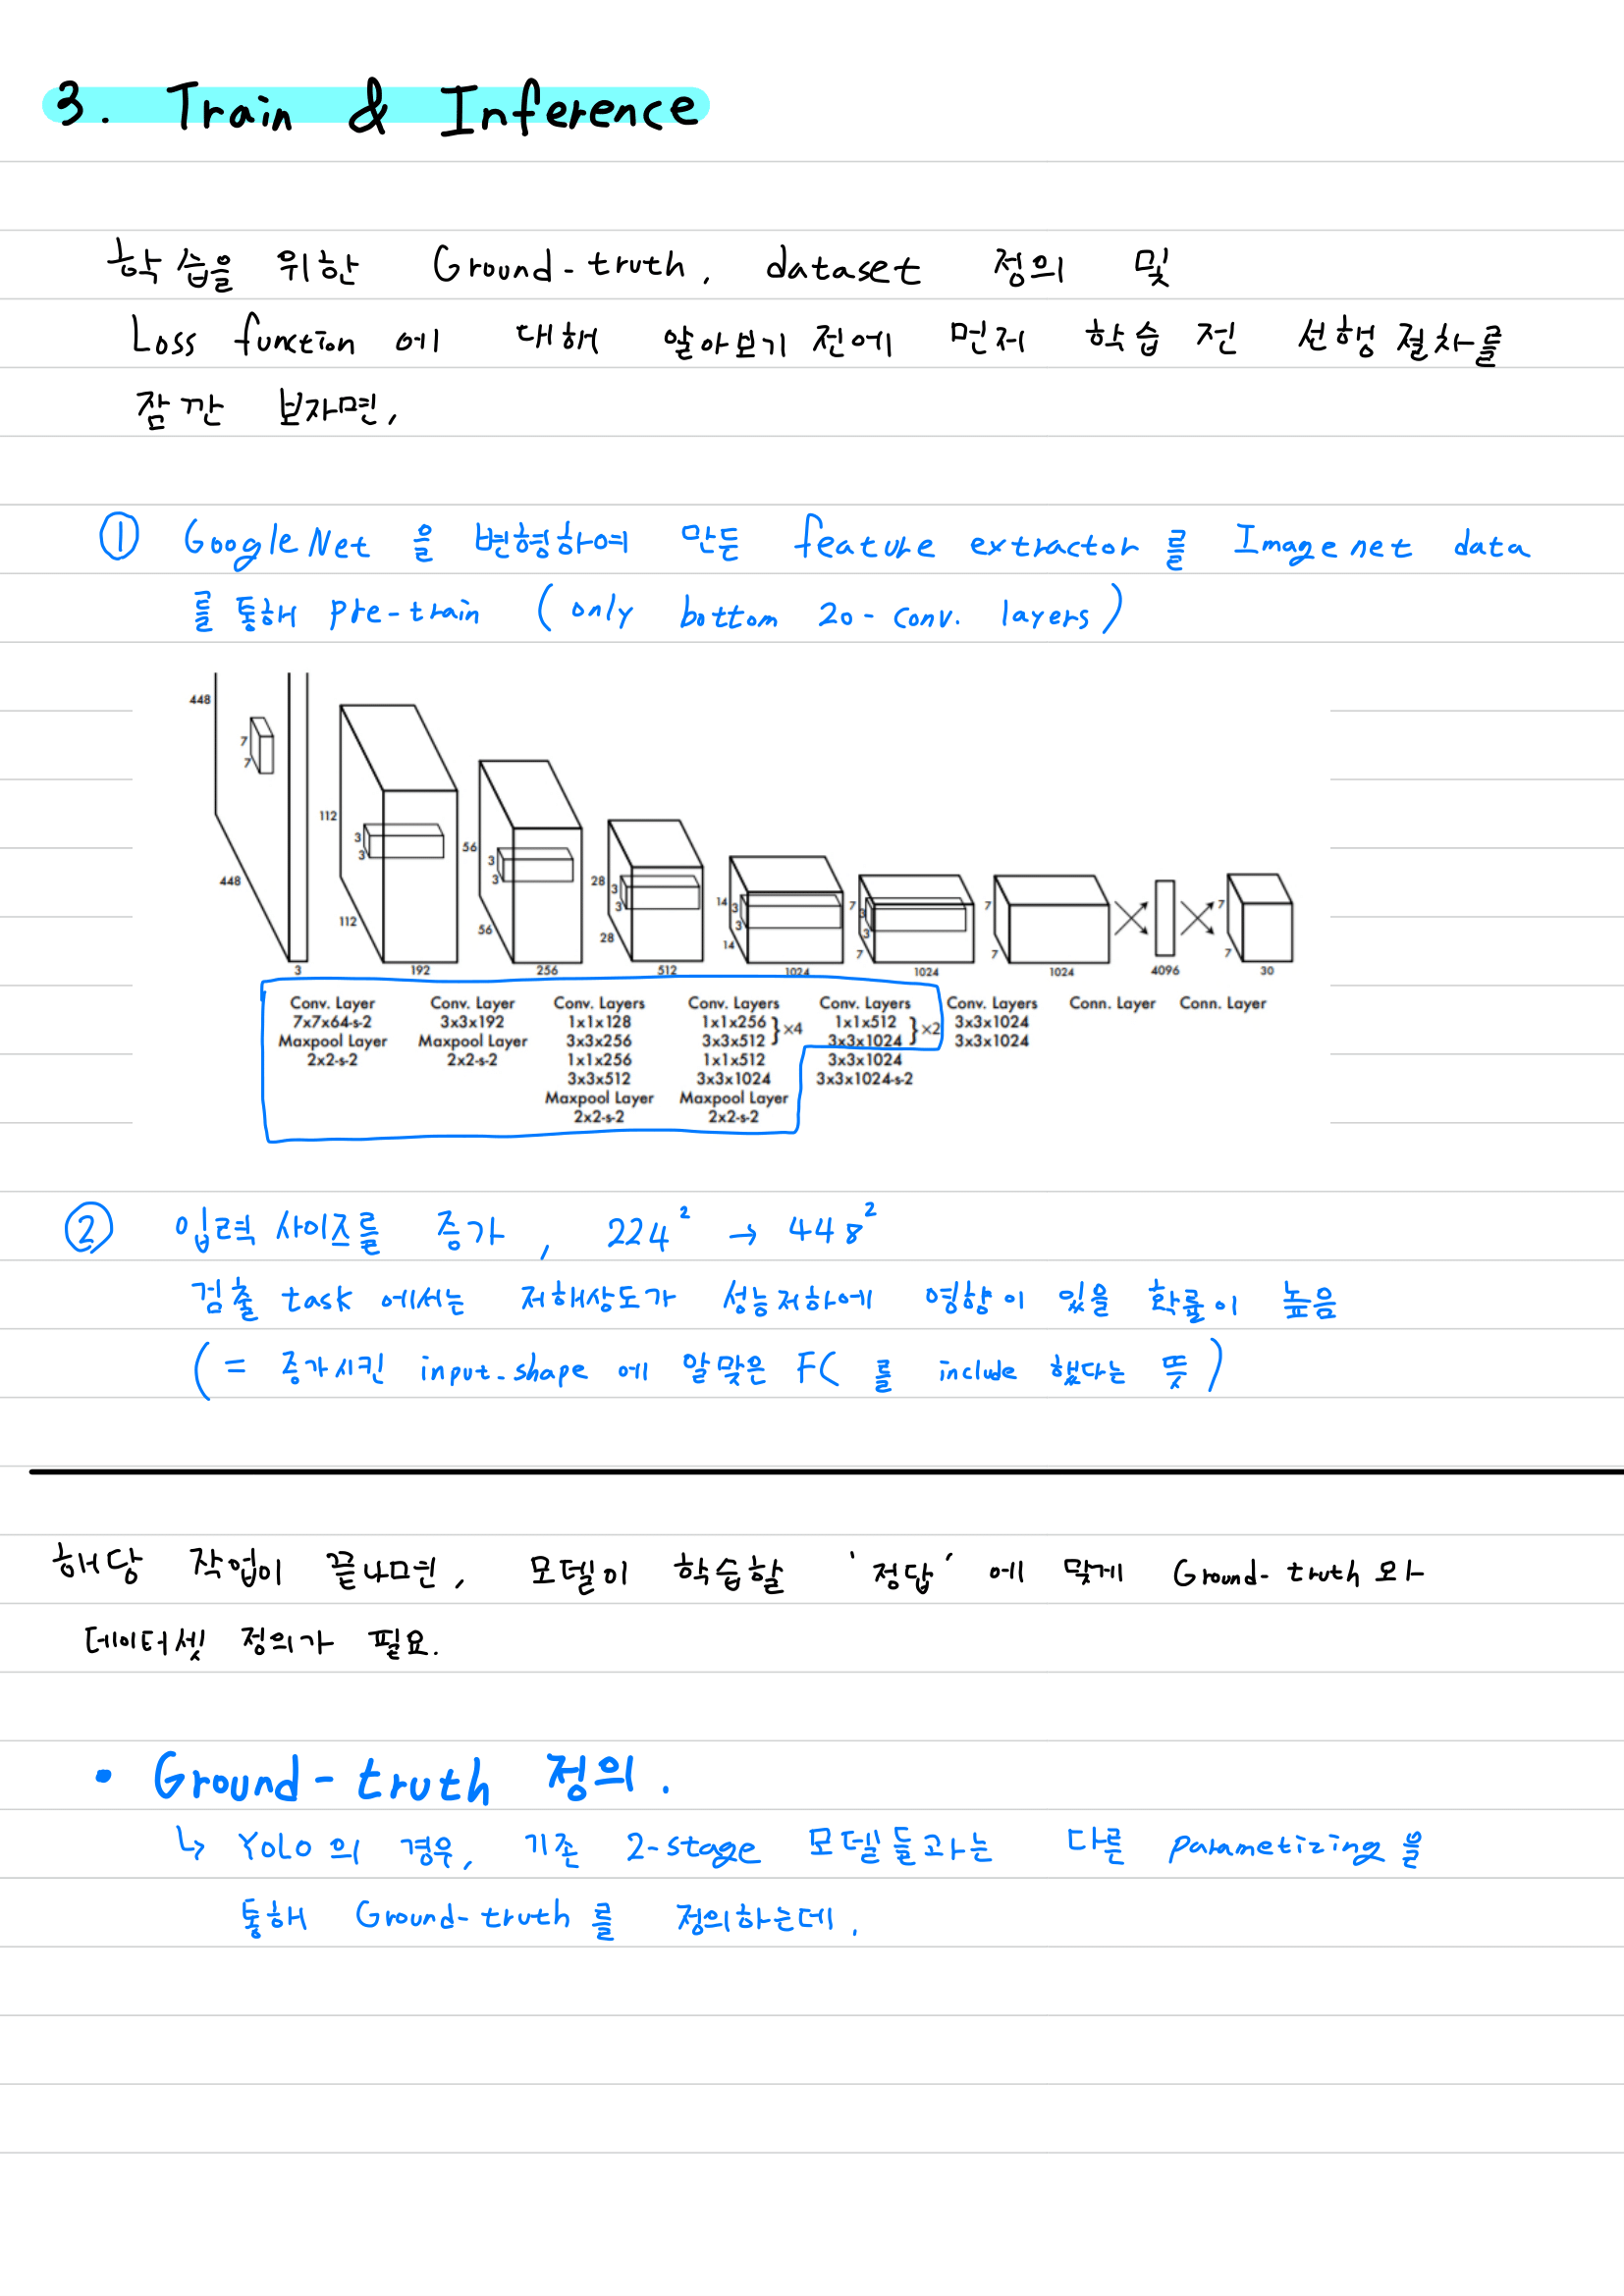 3. Train & Inference
학습을 위한 Ground-truth, dataset 정의 및
Loss function 에 대해 알아보기 전에 먼저 학습 전 선행 절차를
잠깐 보자면,
① GoogleNet 을 변형하여 만든 feature extractor 를 Imagenet data
를 통해 pre-train (only bottom 20-conv. layers)
448
7
7
448
3
112
3
3
112
192
56
3
3
56
256
28
3
3
28
512
14
3
3
14
1024
7
3
3
7
1024
7
7
1024
4096
7
7
30
Conv. Layer
7x7x64-s-2
Maxpool Layer
2x2-s-2
Conv. Layer
3x3x192
Maxpool Layer
2x2-s-2
Conv. Layers
1x1x128
3x3x256
1x1x256
3x3x512
Maxpool Layer
2x2-s-2
Conv. Layers
1x1x256
3x3x512 }×4
1x1x512
3x3x1024
Maxpool Layer
2x2-s-2
Conv. Layers
1x1x512
3x3x1024 }×2
3x3x1024
3x3x1024-s-2
Conv. Layers
3x3x1024
3x3x1024
Conn. Layer
Conn. Layer
② 입력 사이즈를 증가, 224² → 448²
검출 task 에서는 저해상도가 성능저하에 영향이 있을 확률이 높음
(= 증가시킨 input-shape 에 알맞은 FC 를 include 했다는 뜻)
해당 작업이 끝나면, 모델이 학습할 '정답' 에 맞게 Ground-truth 와
데이터셋 정의가 필요.
• Ground-truth 정의.
↳ YOLO 의 경우, 기존 2-stage 모델들과는 다른 parametizing 을
통해 Ground-truth 를 정의하는데,